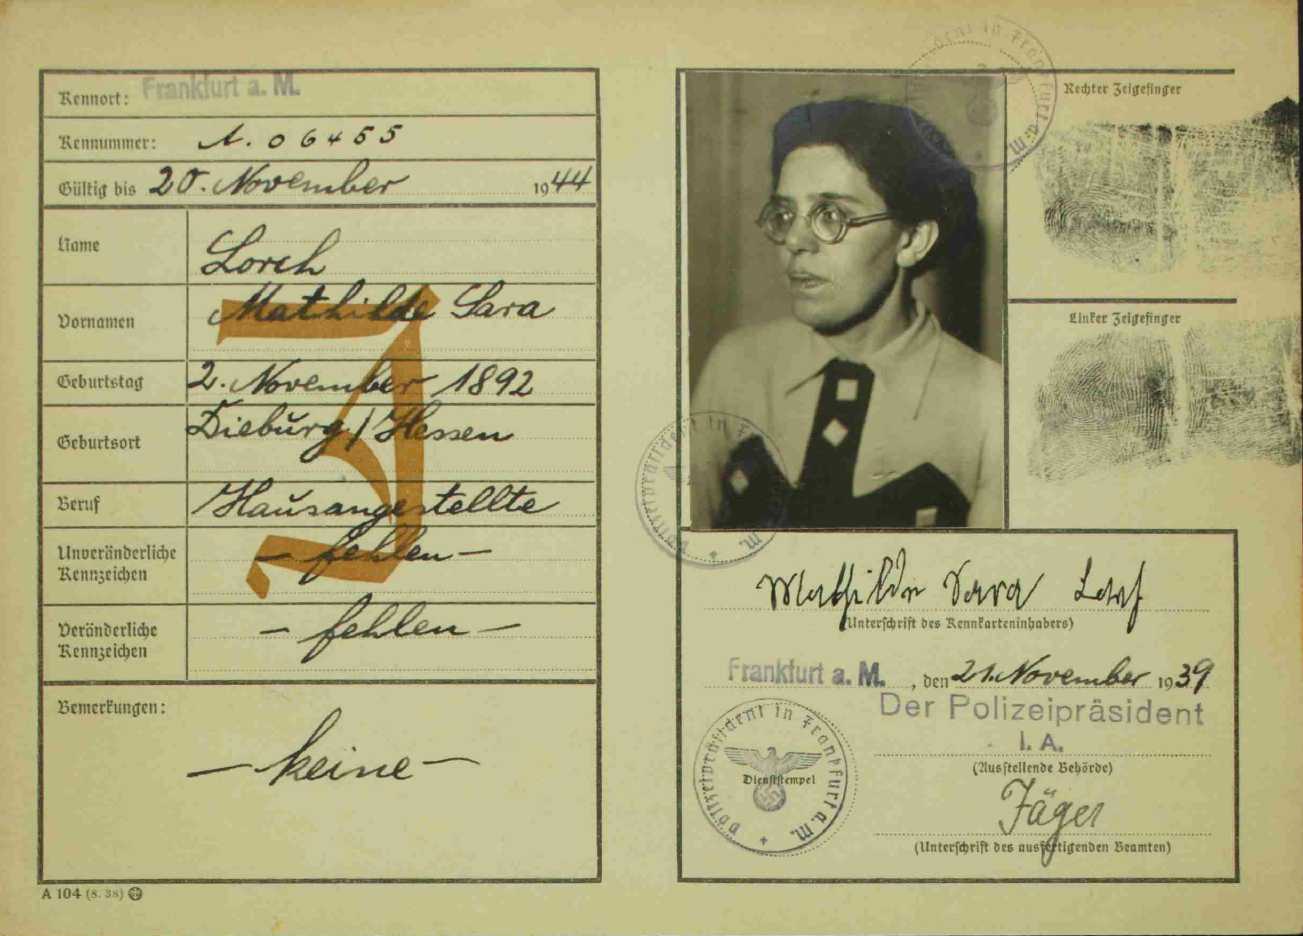 Kennort: Frankfurt a. M.
Kennummer: A. 06455
Gültig bis 20. November 1944
Name Lorch
Vornamen Mathilde Sara
Geburtstag 2. November 1892
Geburtsort Dieburg / Hessen
Beruf Hausangestellte
Unveränderliche Kennzeichen – fehlen –
Veränderliche Kennzeichen – fehlen –
Bemerkungen:
– keine –
J
A 104 (8. 38)
Rechter Zeigefinger
Linker Zeigefinger
Mathilde Sara Lorch
(Unterschrift des Kennkarteninhabers)
Frankfurt a. M. , den 21. November 1939
Der Polizeipräsident
I. A.
(Ausstellende Behörde)
Jäger
(Unterschrift des ausfertigenden Beamten)
Polizeipräsident in Frankfurt a. M.
Dienststempel
Polizeipräsident in F a. M.
dent in Frankfurt a. M.